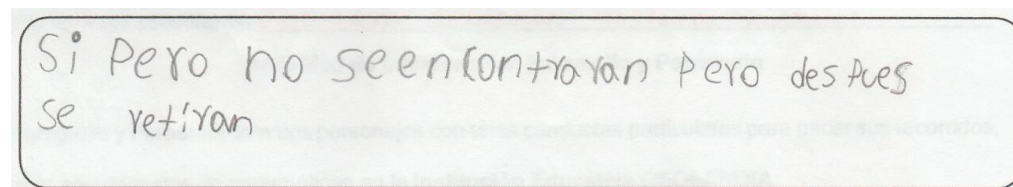 Si Pero no seencontraran Pero des Pues
se retiran